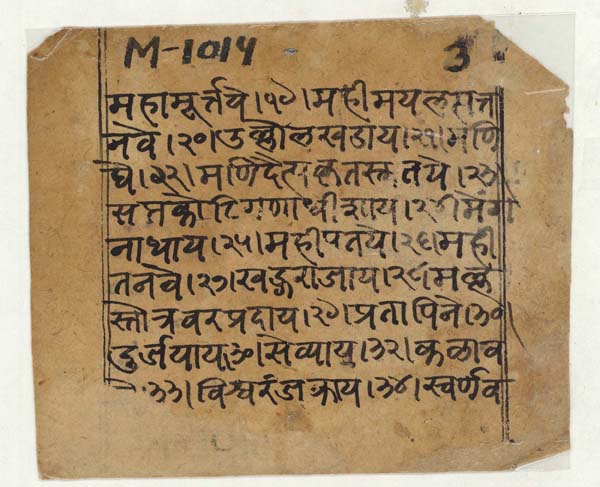 M-1014 3
महामूर्त्तये।१९।महीमयलसत्त
नवे।२०।उ खडाय।२१।मणि
घे।२२।मणिदैत्यकृतस्तुतये।२३।
सप्तकोटिगणाधीशाय।२४।मंग
नाथाय।२५।महीपतये।२६।मही
तनवे।२७।खड्गराजाय।२८।मल्ल
स्तोत्रवरप्रदाय।२९।प्रतापिने।३०।
दुर्जयाय।३१।सेव्याय।३२।कळाव
।३३।विश्वरंजकाय।३४।स्वर्णव